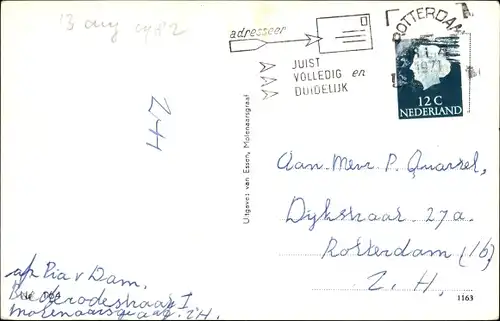 13 aug
adresseer
JUIST
VOLLEDIG en
DUIDELIJK
AAA
ROTTERDAM
1971
12 C
NEDERLAND
ZH
Uitgave: van Essen, Molenaarsgraaf
Aan Mevr P. Quarsel,
Dijkstraat 27a.
Rotterdam (16)
Z.H.
afz Pia v Dam.
Brederodestraat I
Molenaarsgraaf. Z.H.
1163